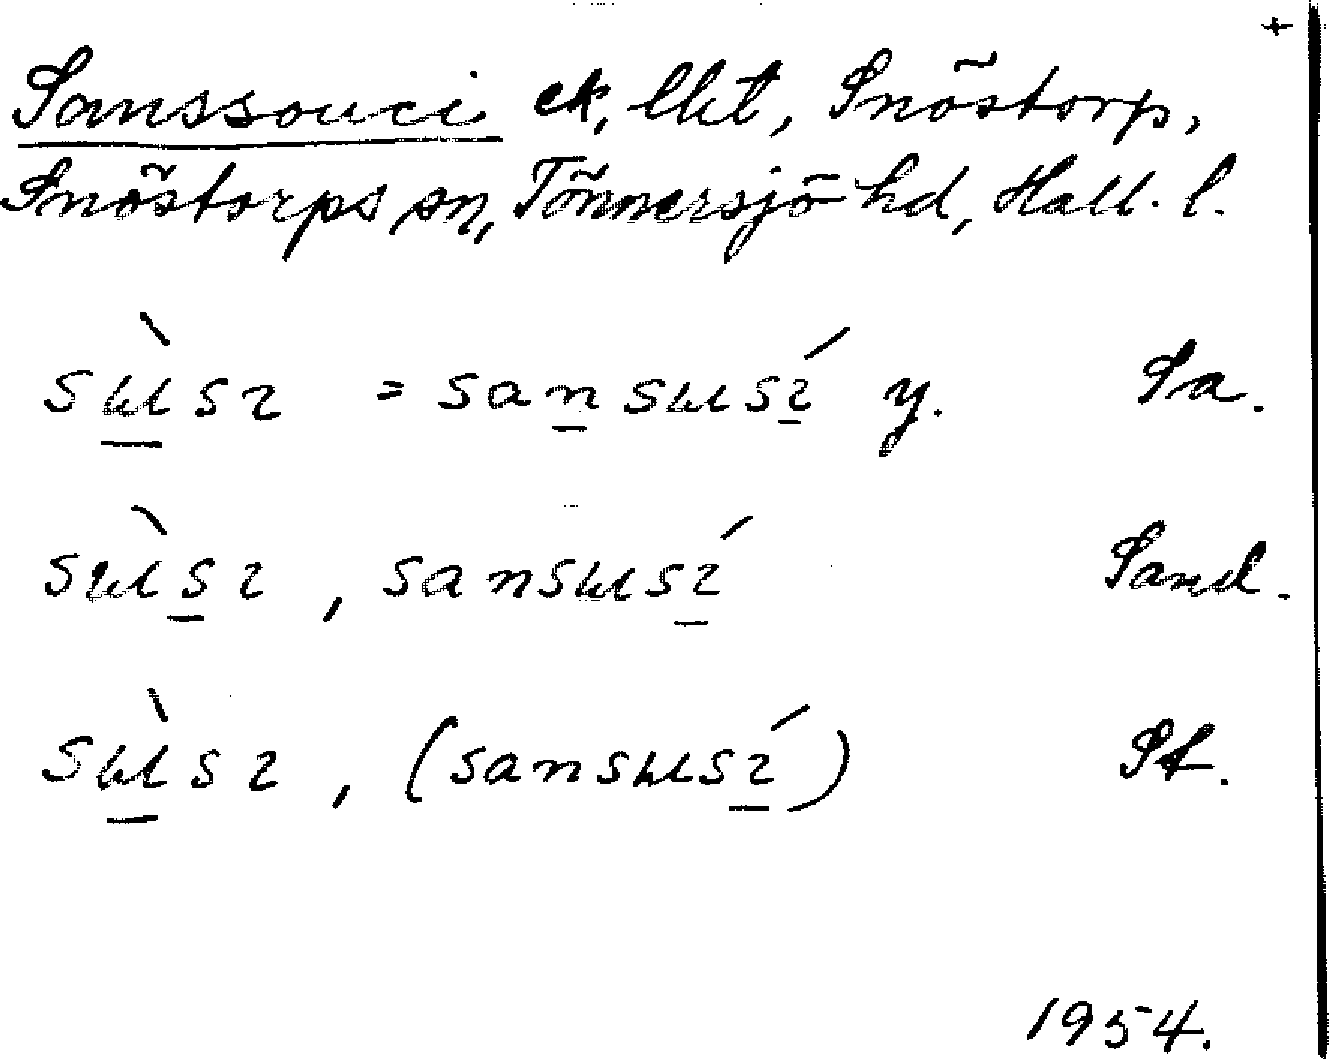 +
Sanssouci ek, lht, Snöstorp,
Snöstorps sn, Tönnersjö hd, Hall. l.
sɯ̀sɩ = sansɯsɩ́ y. Sa.
sɯ̀sɩ, sansɯsɩ́ Sand.
sɯ̀sɩ, (sansɯsɩ́) St.
1954.